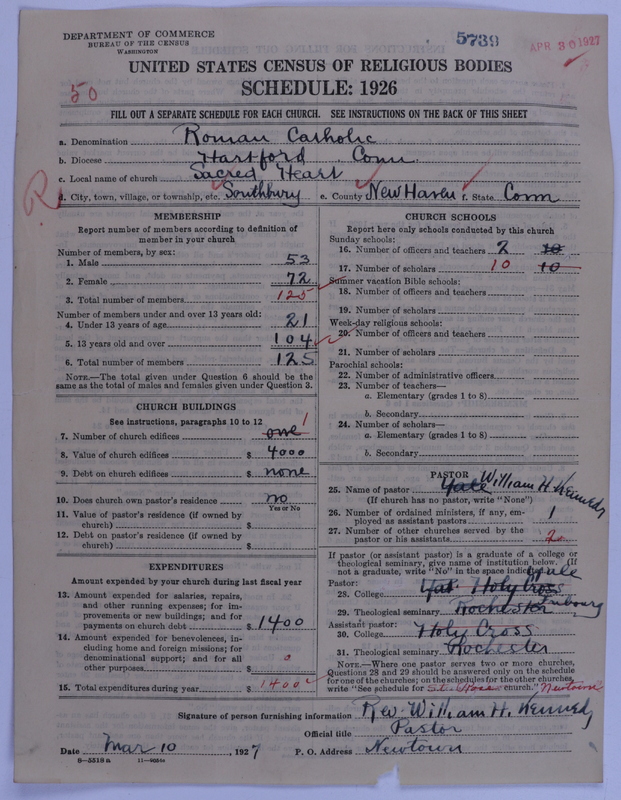 DEPARTMENT OF COMMERCE
BUREAU OF THE CENSUS
WASHINGTON
5739
APR 30 1927
UNITED STATES CENSUS OF RELIGIOUS BODIES
SCHEDULE: 1926
50
FILL OUT A SEPARATE SCHEDULE FOR EACH CHURCH. SEE INSTRUCTIONS ON THE BACK OF THIS SHEET
a. Denomination Roman Catholic
b. Diocese Hartford Conn.
c. Local name of church Sacred Heart
d. City, town, village, or township, etc. Southbury e. County New Haven f. State Conn
R
MEMBERSHIP
Report number of members according to definition of
member in your church
Number of members, by sex:
1. Male 53
2. Female 72
3. Total number of members 125
Number of members under and over 13 years old:
4. Under 13 years of age 21
5. 13 years old and over 104
6. Total number of members 125
NOTE.—The total given under Question 6 should be the
same as the total of males and females given under Question 3.
CHURCH BUILDINGS
See instructions, paragraphs 10 to 12
7. Number of church edifices one 1
8. Value of church edifices $ 4000
9. Debt on church edifices $ none
10. Does church own pastor's residence no
Yes or No
11. Value of pastor's residence (if owned by
church) $
12. Debt on pastor's residence (if owned by
church) $
EXPENDITURES
Amount expended by church during last fiscal year
13. Amount expended for salaries, repairs,
and other running expenses; for im-
provements or new buildings; and for
payments on church debt $ 1400
14. Amount expended for benevolences, in-
cluding home and foreign missions; for
denominational support; and for all
other purposes $ 0
15. Total expenditures during year $ 1400
CHURCH SCHOOLS
Report here only schools conducted by this church
Sunday schools:
16. Number of officers and teachers 2 10
17. Number of scholars 10 10
Summer vacation Bible schools:
18. Number of officers and teachers
19. Number of scholars
Week-day religious schools:
20. Number of officers and teachers
21. Number of scholars
Parochial schools:
22. Number of administrative officers
23. Number of teachers—
a. Elementary (grades 1 to 8)
b. Secondary
24. Number of scholars—
a. Elementary (grades 1 to 8)
b. Secondary
PASTOR
25. Name of pastor Yale William H. Kennedy
(If church has no pastor, write "None")
26. Number of ordained ministers, if any, em-
ployed as assistant pastors 1
27. Number of other churches served by the
pastor or his assistants 2
If pastor (or assistant pastor) is a graduate of a college or
theological seminary, give name of institution below. (If
not a graduate, write "No" in the space indicated.)
Pastor:
28. College Yale Holy Cross Yale
29. Theological seminary Rochester
Assistant pastor:
30. College Holy Cross
31. Theological seminary Rochester
NOTE.—Where one pastor serves two or more churches,
Questions 28 and 29 should be answered only on the schedule
for one of the churches; on the schedules for the other churches,
write "See schedule for St. Rose church." Newtown
Signature of person furnishing information Rev. William H. Kennedy
Official title Pastor
Date Mar 10, 1927 P. O. Address Newtown
8—5518a 11—9054